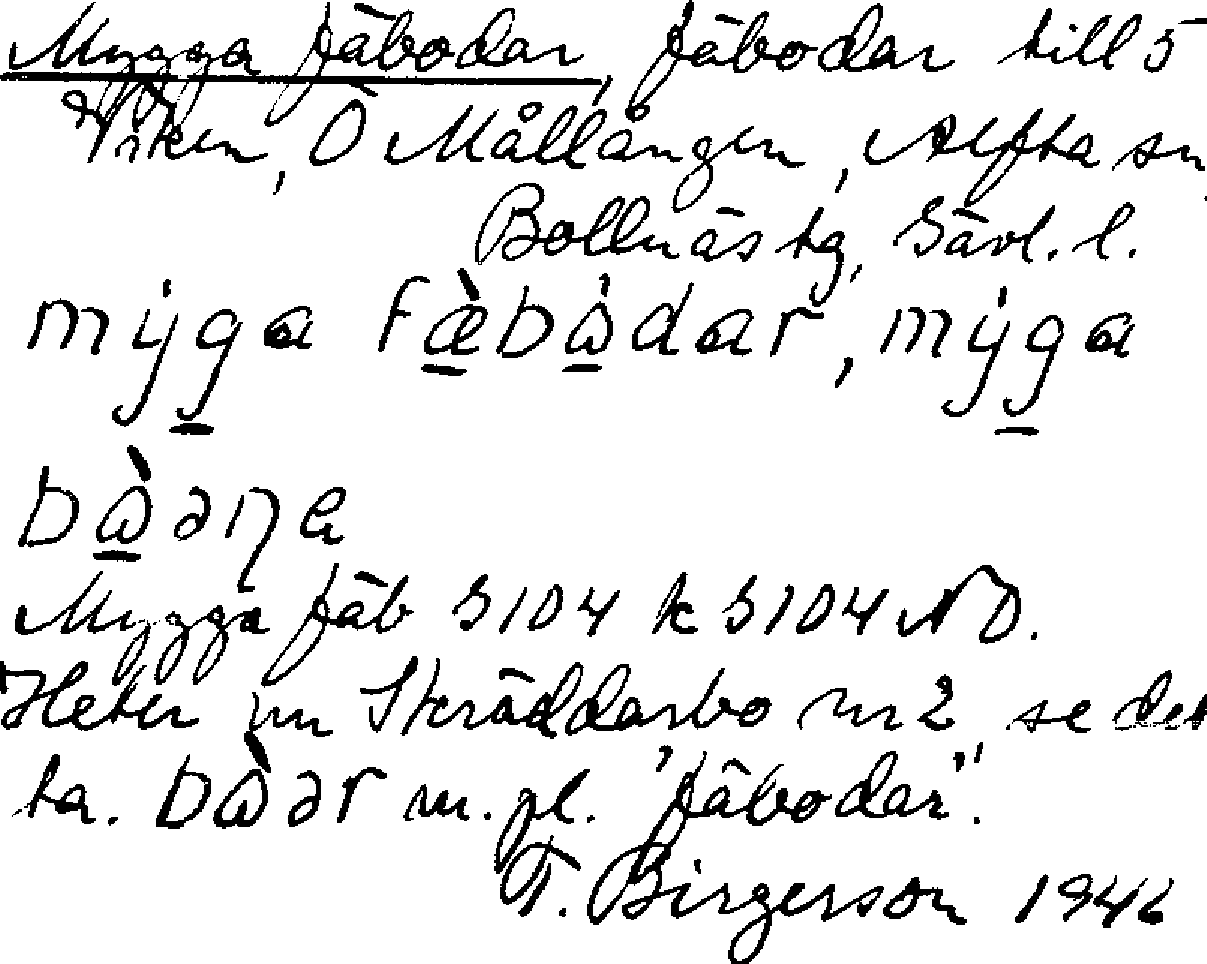 Mygga fäbodar, fäbodar till 5
Viken, Ö Mållången, Alfta sn,
Bollnäs tg, Gävl. l.
mýga fæ̀bὼdar, mýga
bὼəɳa
Mygga fäb G104 k G104 NO.
Heter nu Skräddarbo nr 2, se det
ta. bὼər m. pl. "fäbodar".
T. Birgerson 1946